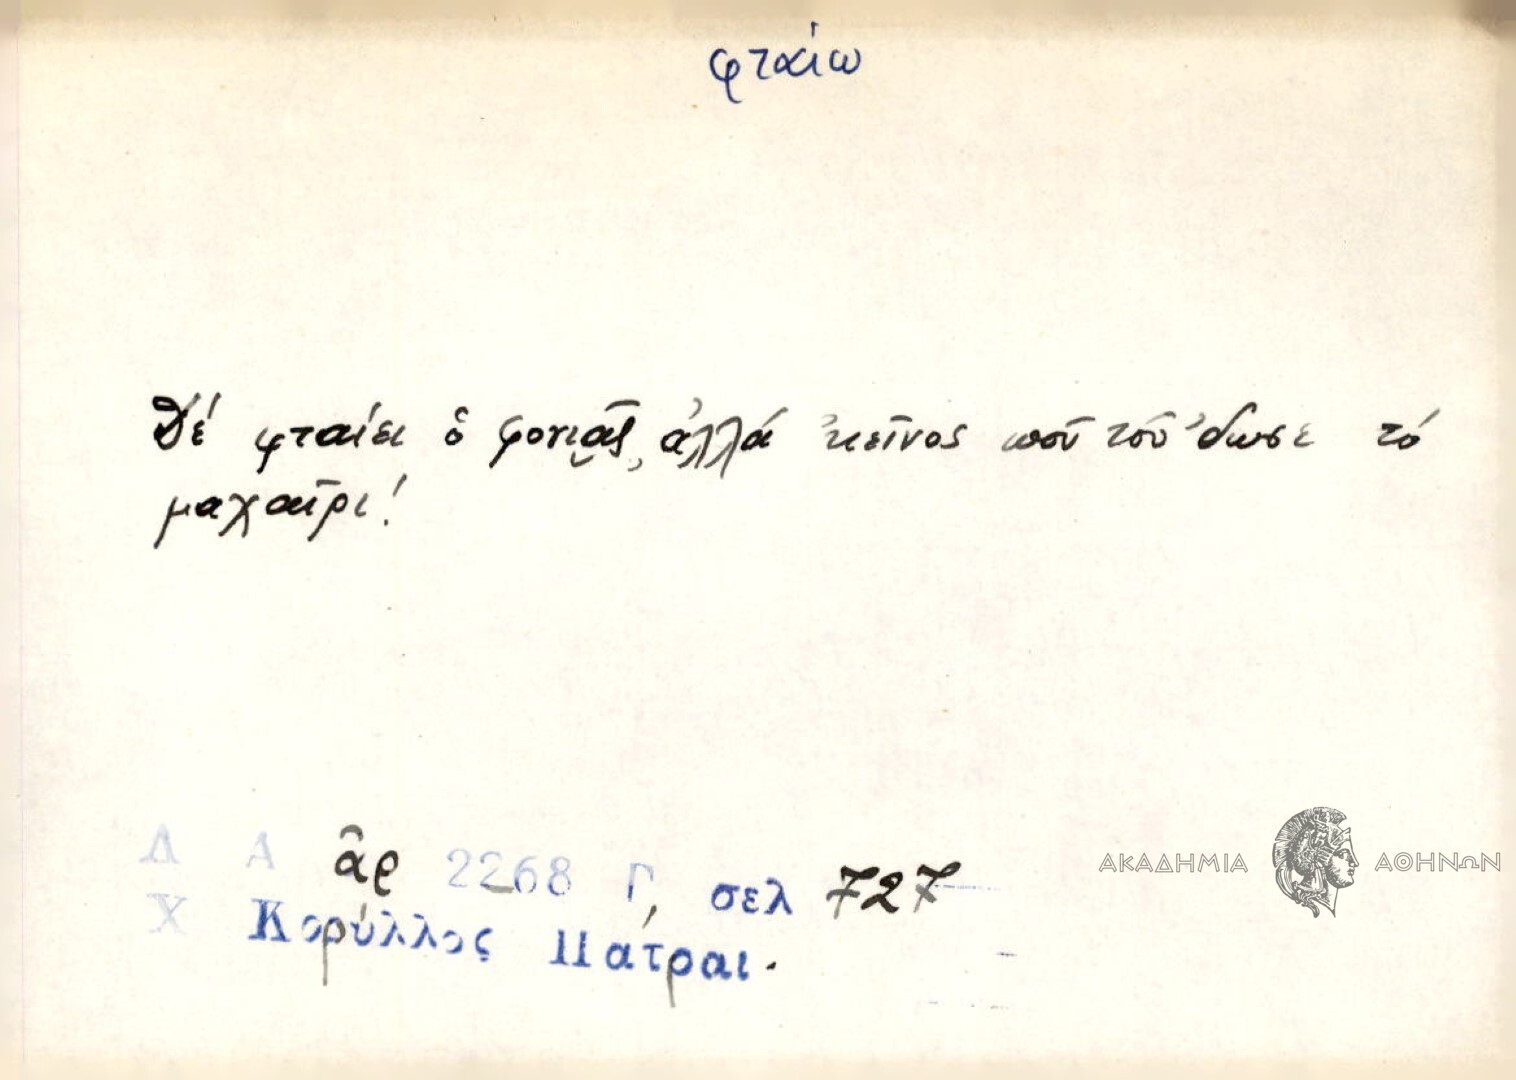 φταίω
Δέ φταίει ὁ φονιᾶς, ἀλλά 'κεῖνος ποῦ τοῦ 'δωσε τό
μαχαῖρι!
Λ Α ἀρ 2268 Γ, σελ 727
Χ Κορύλλος Πάτραι.
ΑΚΑΔΗΜΙΑ ΑΘΗΝΩΝ